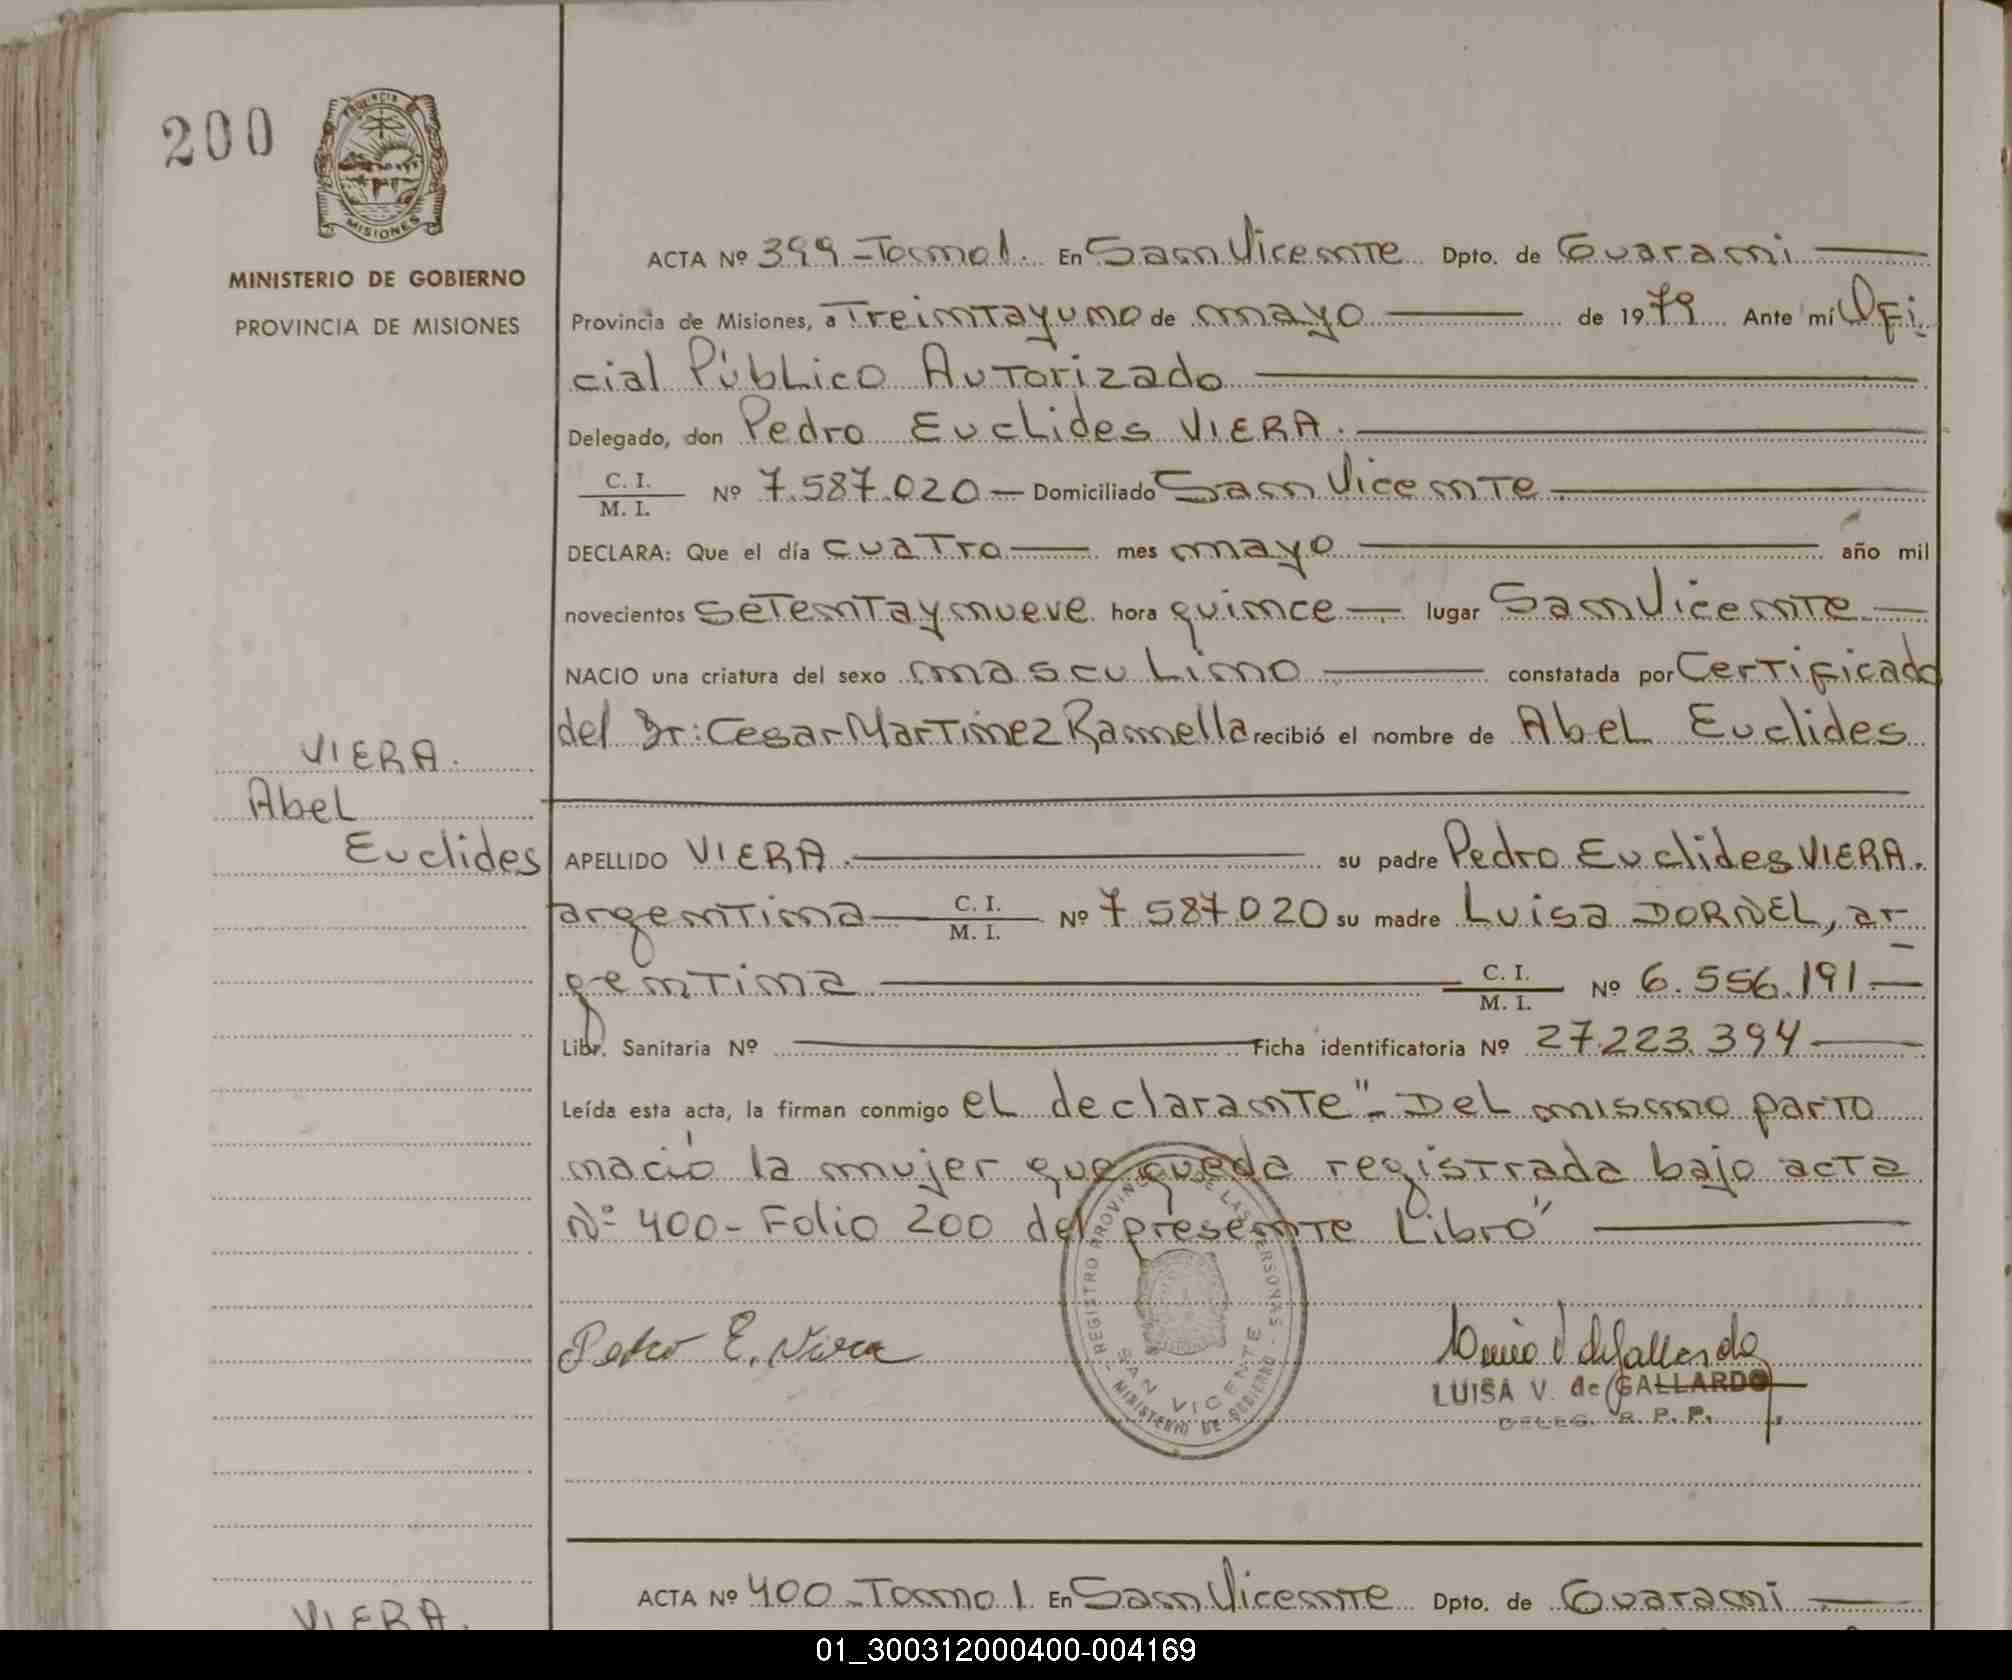 200
PROVINCIA
MISIONES
MINISTERIO DE GOBIERNO
PROVINCIA DE MISIONES
ACTA Nº 399-Tomo 1. En San Vicente Dpto. de Guarani
Provincia de Misiones, a Treinta y uno de mayo de 1979 Ante mí Ofi
cial Público Autorizado
Delegado, don Pedro Euclides VIERA.
C. I.
M. I. Nº 7.587.020 — Domiciliado San Vicente
DECLARA: Que el día cuatro mes mayo año mil
novecientos setenta y nueve hora quince lugar San Vicente
NACIO una criatura del sexo masculino constatada por Certificado
del Dr: Cesar Martinez Ramella recibió el nombre de Abel Euclides
VIERA.
Abel
Euclides
APELLIDO VIERA. su padre Pedro Euclides VIERA.
argentina C. I.
M. I. Nº 7.587.020 su madre Luisa DORNEL, ar
gentina C. I.
M. I. Nº 6.556.191
Libr. Sanitaria Nº Ficha identificatoria Nº 27.223.394
Leída esta acta, la firman conmigo el declarante "- Del mismo parto
nació la mujer que queda registrada bajo acta
Nº 400- Folio 200 del presente Libro"
REGISTRO PROVINCIAL DE LAS PERSONAS
SAN VICENTE
MINISTERIO DE GOBIERNO
Pedro E. Viera
LUISA V. de GALLARDO
DELEG. R. P. P.
ACTA Nº 400-Tomo 1. En San Vicente Dpto. de Guarani
VIERA.
01_300312000400-004169